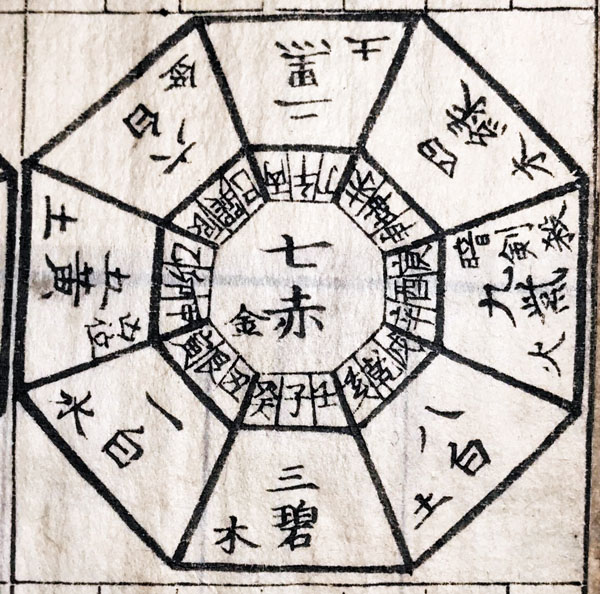 二黒
土
四緑
木
暗剣殺
九紫
火
八白
土
三碧
木
一白
水
五黄
土
六白
金
丙午丁
未坤申
庚酉辛
戌乾亥
壬子癸
丑艮寅
甲卯乙
辰巽巳
七赤
金